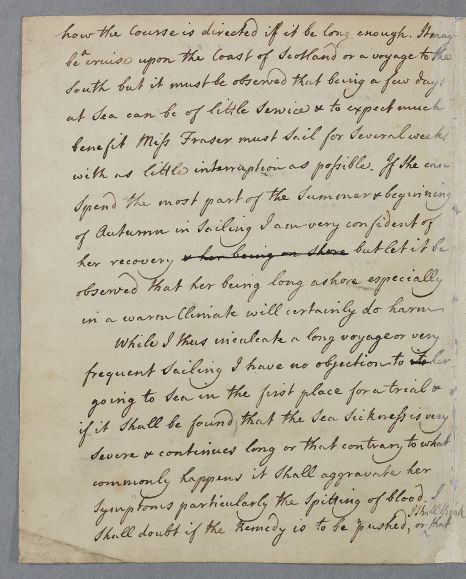 how the Course is directed if it be long enough. It may
be a cruise upon the Coast of Scotland or a voyage to the
South but it must be observed that being a few days
at Sea can be of little Service & to expect much
benefit Miss Fraser must Sail for Several weeks
with as little interruption as possible. If She can
Spend the most part of the Summer & beginning
of Autumn in Sailing I am very confident of
her recovery & her being on Shore but let it be
observed that her being long ashore especially
in a warm Climate will certainly do harm
While I thus inculcate a long voyage or very
frequent Sailing I have no objection to its her
going to Sea in the first place for a trial &
if it Shall be found that the Sea Sickness is very
Severe & continues long or that contrary to what
commonly happens it Shall aggravate her
Symptoms particularly the Spitting of blood. I
Shall doubt if the Remedy is to be pushed, or I Shall think that